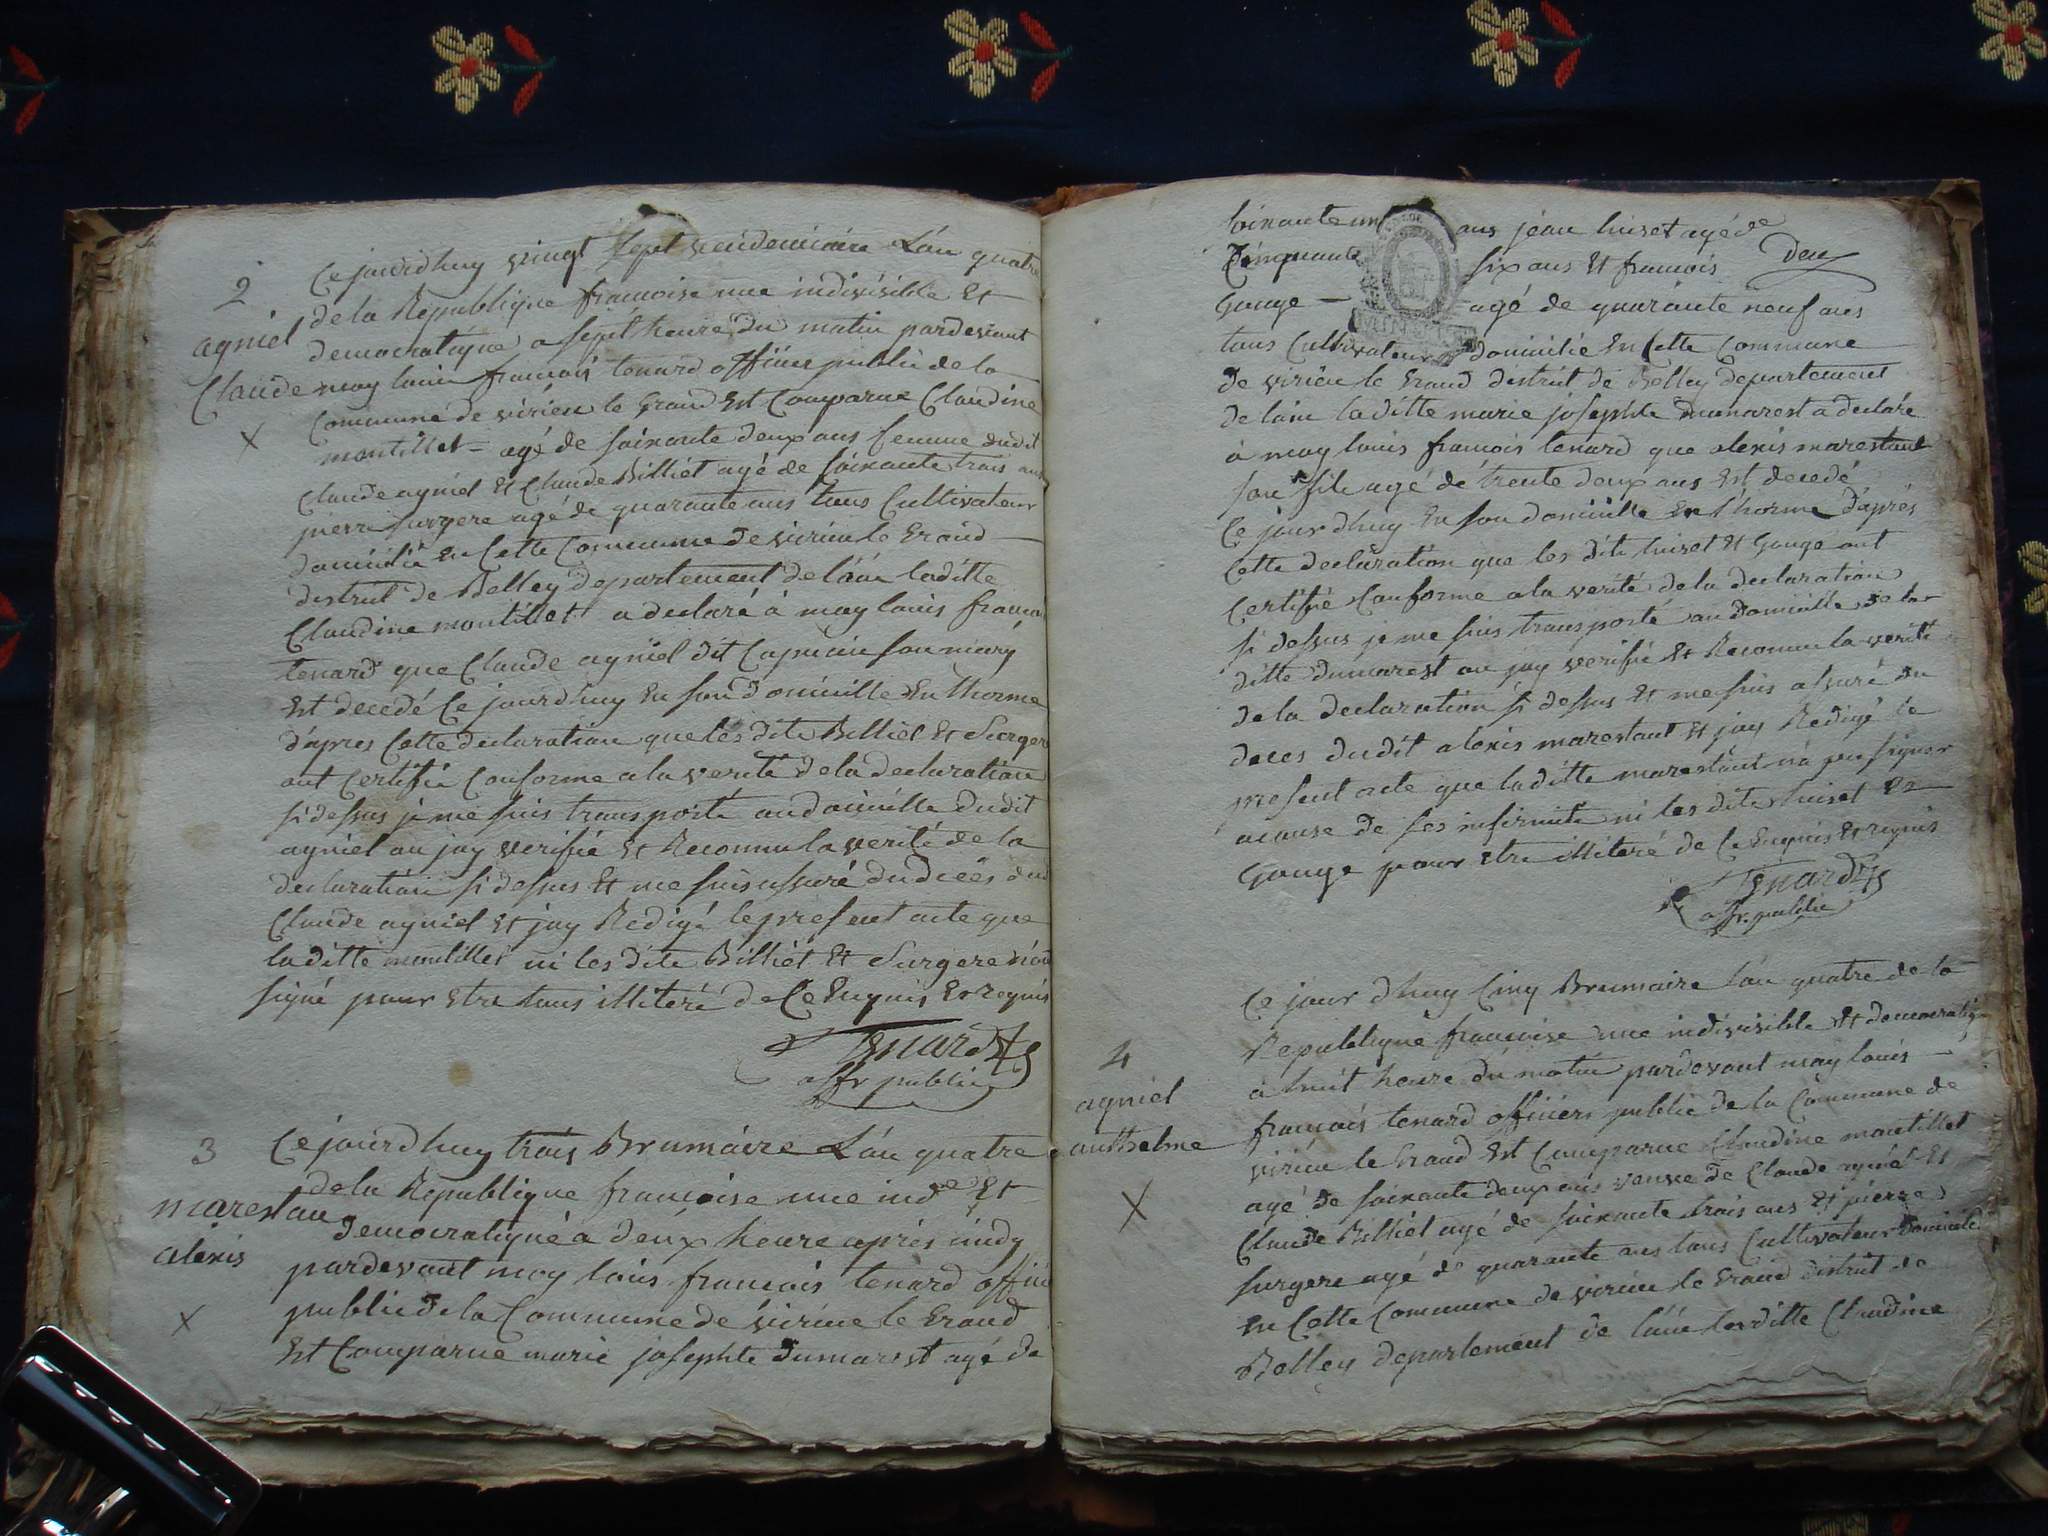 2
agniel
Claude
X
Ce jourdhuy vingt sept vendemiaire L'an quatre
de la Republique francoise une indivisible Et
democratique a sept heure du matin pardevant
moy louis francois tenard officier public de la
Commune de virieu le Grand Est Comparue Claudine
montillet agé de soixante deux ans femme dudit
Claude agniel Et Claude Billiet agé de soixante trois ans
pierre surgere agé de quarante ans tous Cultivateur
domicilié En Cette Commune de virieu le Grand
district de Belley departement de l'ain laditte
Claudine montillet a declaré à moy louis francois
tenard que Claude agniel dit son mary
Est decedé Ce jourdhuy En son domicille En lhorme
d'apres Cette declaration que les dits Billiet Et Surgere
ont Certifié Conforme a la verité de la declaration
si dessus je me suis transporté au domicille dudit
agniel ou jay verifié Et Reconnu la verité de la
declaration si dessus Et me suis assuré du decés dud
Claude agniel Et jay Redigé le present acte que
la ditte montillet ni les dits Billiet Et Surgere n'ont
signé pour Etre tous illiteré de Ce Enquis Et requis
Tenard
offr public
3
marestan
alexis
X
Ce jourdhuy trois Brumaire L'an quatre
de la Republique francoise une inde Et
democratique a deux heure après midy
pardevant moy louis francois tenard officier
public de la Commune de virieu le Grand
Est Comparue marie josephte dumarest agé de
soixante un ans jean huset agé de
Cinquante six ans Et francois
deux
Gouge — agé de quarante neuf ans
tous Cultivateur domicilié En Cette Commune
de virieu le Grand district de Belley departement
de lain laditte marie josephte dumarest a declaré
à moy louis francois tenard que alexis marestant
son fils agé de trente deux ans Est decedé
Ce jour dhuy En son domicille En l'horme D'après
Cette declaration que les dits huset Et Gouge ont
Certifié Conforme a la verité de la declaration
si dessus je me suis transporté au domicille de la
ditte dumarest ou jay verifié Et Reconnu la verité
de la declaration si dessus Et me suis assuré du
deces dudit alexis marestant Et jay Redigé le
present acte que laditte marestant n'a peu signer
acause de ses infirmité ni les dits huset Et
Gouge pour Etre illiteré de Ce Enquis Et requis
Tenard
offr. public
4
agniel
anthelme
X
Ce jour dhuy Cinq Brumaire l'an quatre de la
Republique francoise une indivisible Et democratique
a huit heure du matin pardevant moy louis
francois tenard officiers public de la Commune de
virieu le Grand Est Comparue Claudine montillet
agé de soixante deux ans veuve de Claude agniel Et
Claude Billiet agé de soixante trois ans Et pierre
surgere agé de quarante ans tous Cultivateur domicilié
En Cette Commune de virieu le Grand district de
Belley departement de l'ain laditte Claudine